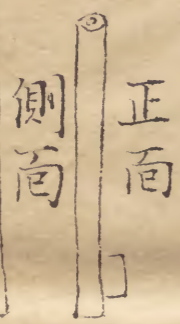 正面
側面